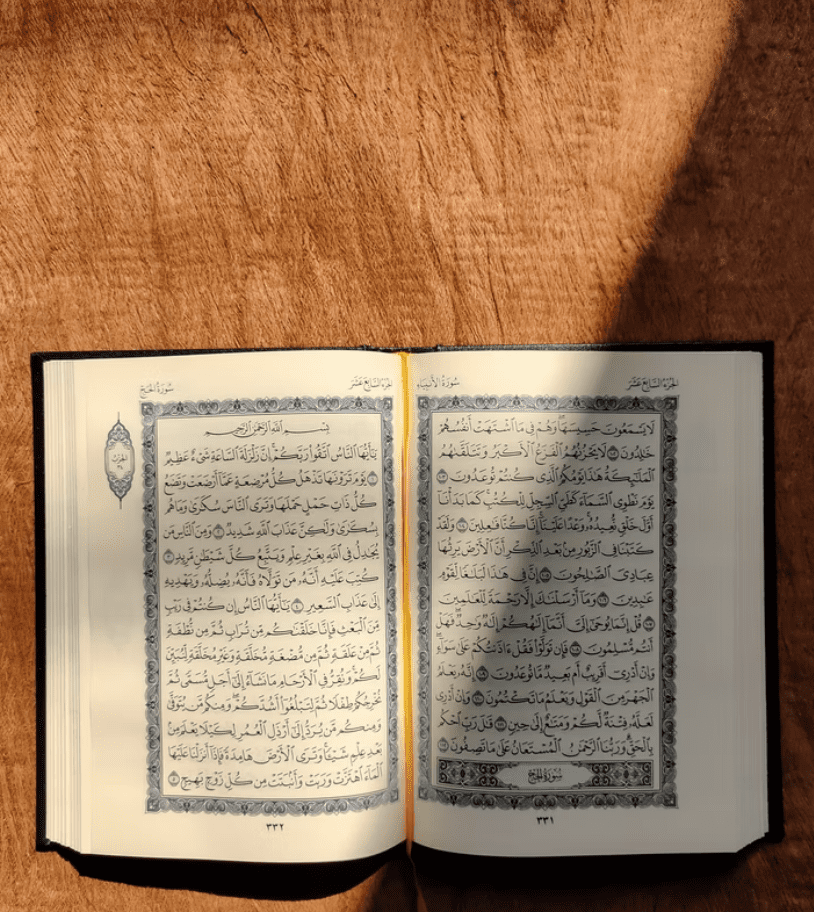 الجزء السابع عشر
سورة الأنبياء
لَا يَسْمَعُونَ حَسِيسَهَا ۖ وَهُمْ فِى مَا ٱشْتَهَتْ أَنفُسُهُمْ
خَٰلِدُونَ ١٠٢ لَا يَحْزُنُهُمُ ٱلْفَزَعُ ٱلْأَكْبَرُ وَتَتَلَقَّىٰهُمُ
ٱلْمَلَٰٓئِكَةُ هَٰذَا يَوْمُكُمُ ٱلَّذِى كُنتُمْ تُوعَدُونَ ١٠٣
يَوْمَ نَطْوِى ٱلسَّمَآءَ كَطَىِّ ٱلسِّجِلِّ لِلْكُتُبِ ۚ كَمَا بَدَأْنَآ
أَوَّلَ خَلْقٍ نُّعِيدُهُۥ ۚ وَعْدًا عَلَيْنَآ ۚ إِنَّا كُنَّا فَٰعِلِينَ ١٠٤ وَلَقَدْ
كَتَبْنَا فِى ٱلزَّبُورِ مِنۢ بَعْدِ ٱلذِّكْرِ أَنَّ ٱلْأَرْضَ يَرِثُهَا
عِبَادِىَ ٱلصَّٰلِحُونَ ١٠٥ إِنَّ فِى هَٰذَا لَبَلَٰغًا لِّقَوْمٍ
عَٰبِدِينَ ١٠٦ وَمَآ أَرْسَلْنَٰكَ إِلَّا رَحْمَةً لِّلْعَٰلَمِينَ
١٠٧ قُلْ إِنَّمَا يُوحَىٰٓ إِلَىَّ أَنَّمَآ إِلَٰهُكُمْ إِلَٰهٌ وَٰحِدٌ ۖ فَهَلْ
أَنتُم مُّسْلِمُونَ ١٠٨ فَإِن تَوَلَّوْا۟ فَقُلْ ءَاذَنتُكُمْ عَلَىٰ سَوَآءٍ ۖ
وَإِنْ أَدْرِىٓ أَقَرِيبٌ أَم بَعِيدٌ مَّا تُوعَدُونَ ١٠٩ إِنَّهُۥ يَعْلَمُ
ٱلْجَهْرَ مِنَ ٱلْقَوْلِ وَيَعْلَمُ مَا تَكْتُمُونَ ١١٠ وَإِنْ أَدْرِى
لَعَلَّهُۥ فِتْنَةٌ لَّكُمْ وَمَتَٰعٌ إِلَىٰ حِينٍ ١١١ قَٰلَ رَبِّ ٱحْكُم
بِٱلْحَقِّ ۗ وَرَبُّنَا ٱلرَّحْمَٰنُ ٱلْمُسْتَعَانُ عَلَىٰ مَا تَصِفُونَ ١١٢
سورة الحج
٣٣١
الجزء السابع عشر
سورة الحج
بِسْمِ ٱللَّهِ ٱلرَّحْمَٰنِ ٱلرَّحِيمِ
يَٰٓأَيُّهَا ٱلنَّاسُ ٱتَّقُوا۟ رَبَّكُمْ ۚ إِنَّ زَلْزَلَةَ ٱلسَّاعَةِ شَىْءٌ عَظِيمٌ
١ يَوْمَ تَرَوْنَهَا تَذْهَلُ كُلُّ مُرْضِعَةٍ عَمَّآ أَرْضَعَتْ وَتَضَعُ
كُلُّ ذَاتِ حَمْلٍ حَمْلَهَا وَتَرَى ٱلنَّاسَ سُكَٰرَىٰ وَمَا هُم
بِسُكَٰرَىٰ وَلَٰكِنَّ عَذَابَ ٱللَّهِ شَدِيدٌ ٢ وَمِنَ ٱلنَّاسِ مَن
يُجَٰدِلُ فِى ٱللَّهِ بِغَيْرِ عِلْمٍ وَيَتَّبِعُ كُلَّ شَيْطَٰنٍ مَّرِيدٍ ٣
كُتِبَ عَلَيْهِ أَنَّهُۥ مَن تَوَلَّاهُ فَأَنَّهُۥ يُضِلُّهُۥ وَيَهْدِيهِ
إِلَىٰ عَذَابِ ٱلسَّعِيرِ ٤ يَٰٓأَيُّهَا ٱلنَّاسُ إِن كُنتُمْ فِى رَيْبٍ
مِّنَ ٱلْبَعْثِ فَإِنَّا خَلَقْنَٰكُم مِّن تُرَابٍ ثُمَّ مِن نُّطْفَةٍ
ثُمَّ مِنْ عَلَقَةٍ ثُمَّ مِن مُّضْغَةٍ مُّخَلَّقَةٍ وَغَيْرِ مُخَلَّقَةٍ لِّنُبَيِّنَ
لَكُمْ ۚ وَنُقِرُّ فِى ٱلْأَرْحَامِ مَا نَشَآءُ إِلَىٰٓ أَجَلٍ مُّسَمًّى ثُمَّ
نُخْرِجُكُمْ طِفْلًا ثُمَّ لِتَبْلُغُوٓا۟ أَشُدَّكُمْ ۖ وَمِنكُم مَّن يُتَوَفَّىٰ
وَمِنكُم مَّن يُرَدُّ إِلَىٰٓ أَرْذَلِ ٱلْعُمُرِ لِكَيْلَا يَعْلَمَ مِنۢ
بَعْدِ عِلْمٍ شَيْـًٔا ۚ وَتَرَى ٱلْأَرْضَ هَامِدَةً فَإِذَآ أَنزَلْنَا عَلَيْهَا
ٱلْمَآءَ ٱهْتَزَّتْ وَرَبَتْ وَأَنۢبَتَتْ مِن كُلِّ زَوْجٍۭ بَهِيجٍ ٥
٣٣٢
الحزب
٣٤